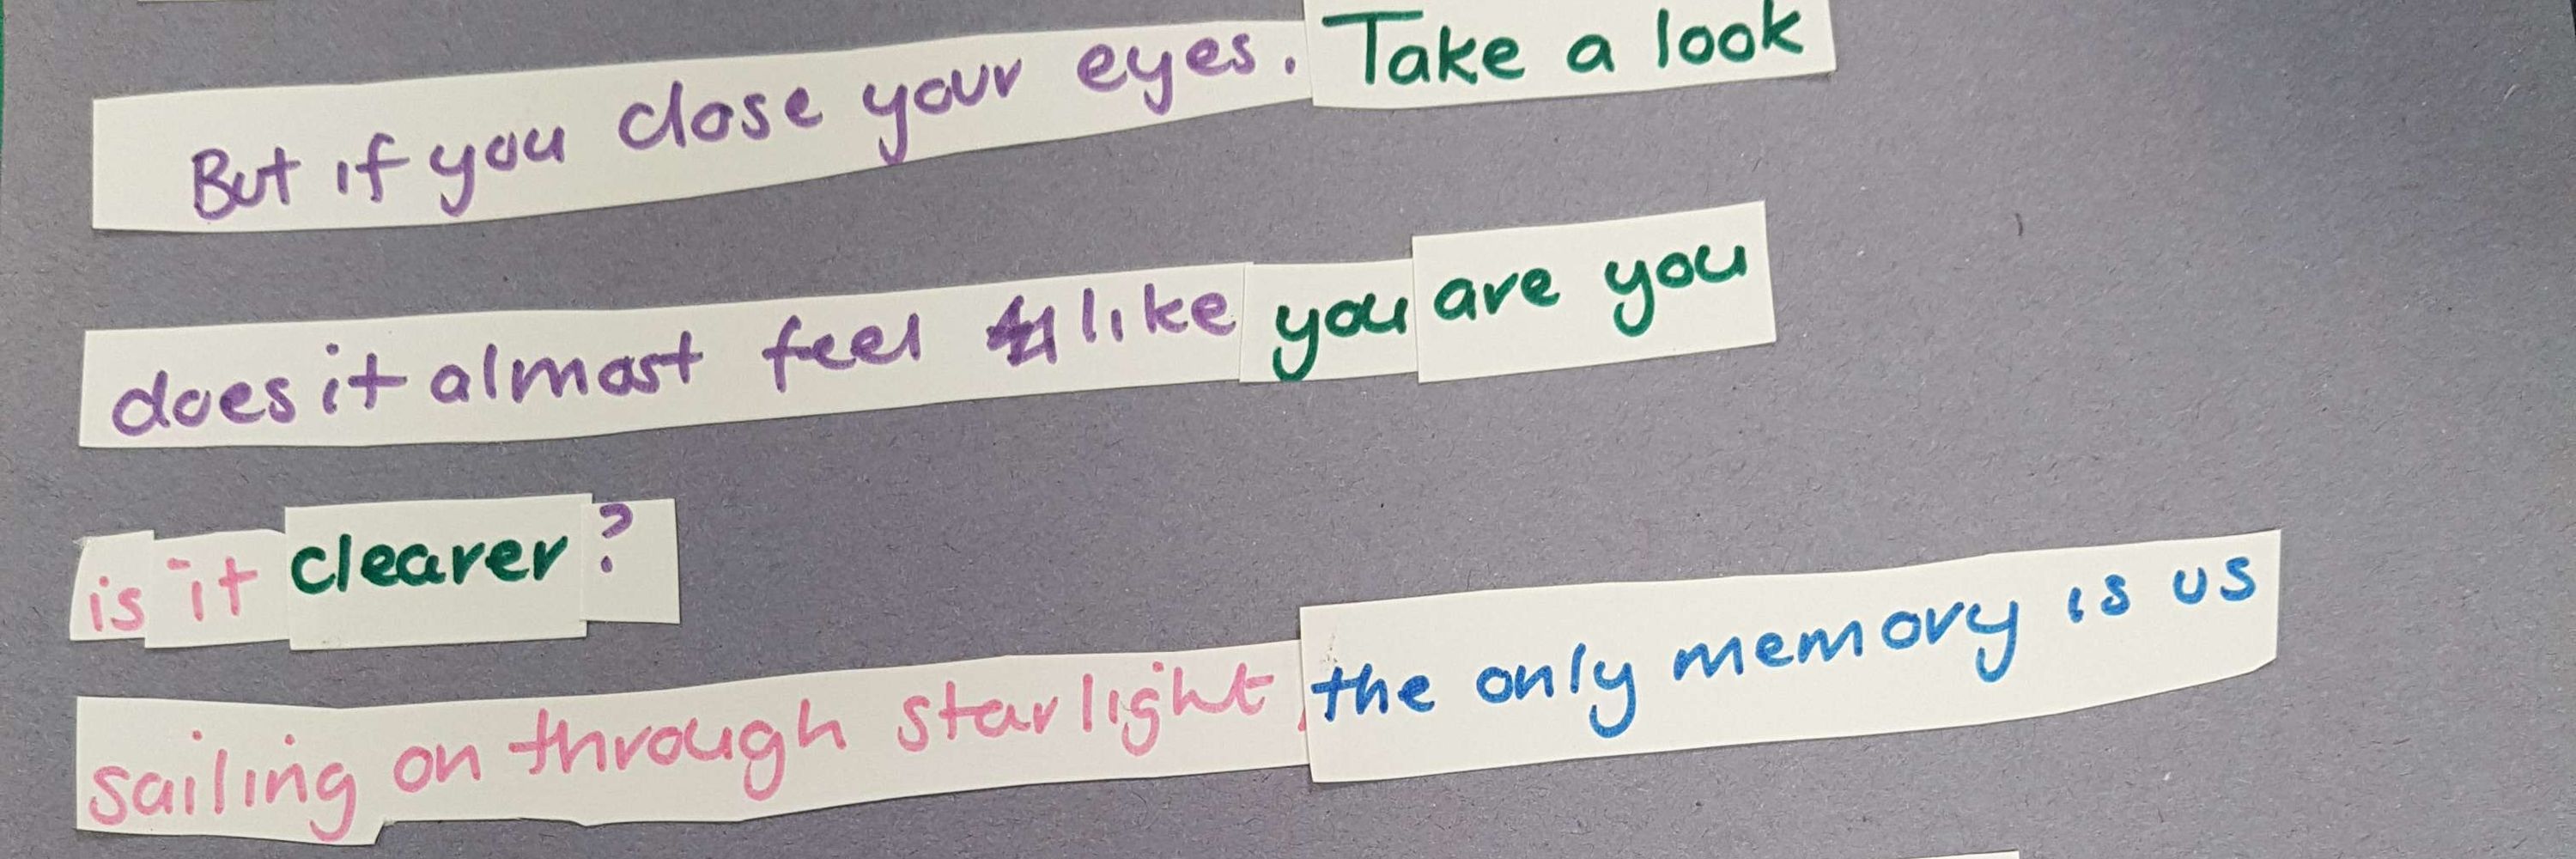 But if you close your eyes. Take a look
does it almost feel like you are you
is it clearer?
sailing on through starlight, the only memory is us